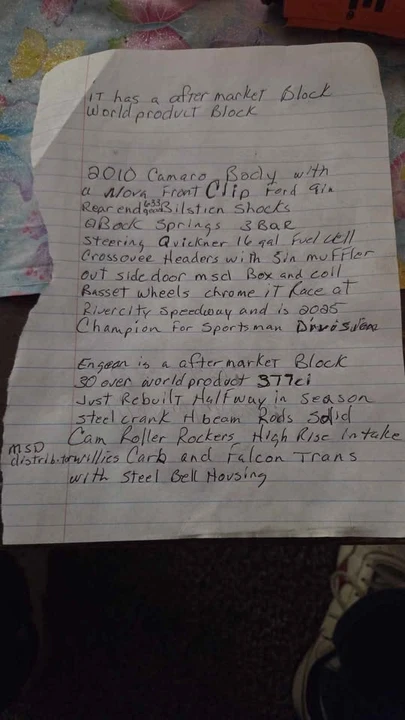 iT has a after market Block
World product Block
2010 Camaro Body with
a Nova Front Clip Ford 9in
Rear end 633 gear Bilstien Shocks
QBack Springs 3 BaR
Steering Quickner 16 gal Fuel cell
Crossover Headers with 5in muFFler
out side door msd Box and coil
Basset wheels chrome iT Race at
Rivercity Speedway and is 2025
Champion For Sportsman Division
Engean is a aftermarket Block
30 over world product 377ci
Just Rebuilt Halfway in Season
Steel crank H beam Rods Solid
Cam Roller Rockers High Rise Intake
MSD
distributor willies Carb and Falcon Trans
with Steel Bell Housing